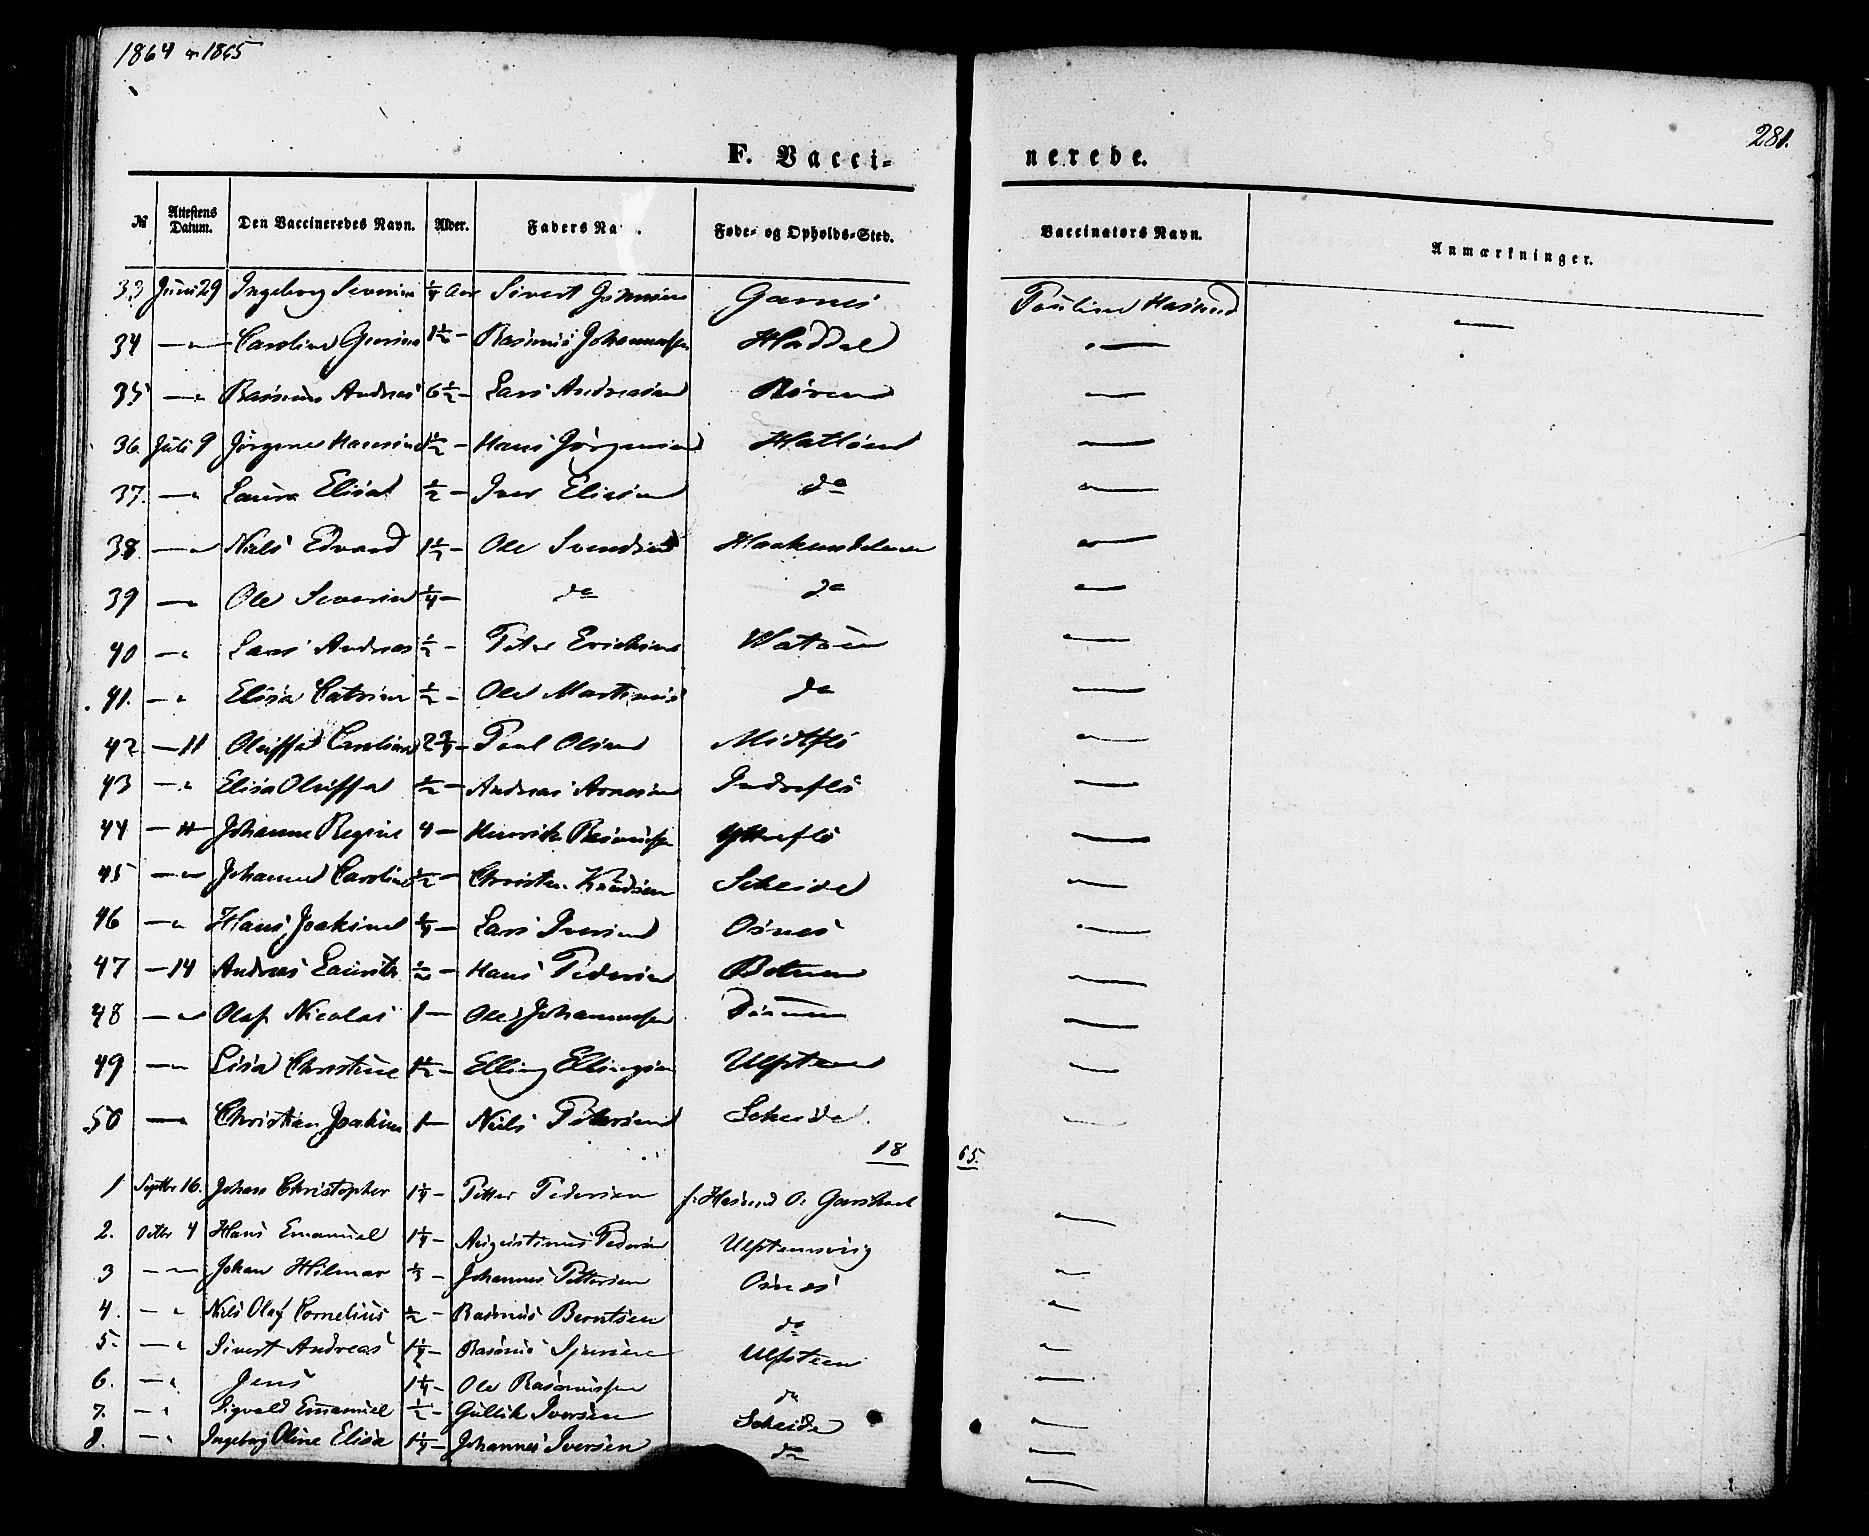 1864 og 1865
281.
F. Vacci-nerede.
No Attestens Datum. Den Vaccineredes Navn. Alder. Faders Na . Føde- og Opholds-Sted. Vaccinatørs Navn. Anmærkninger.
33 Juni 29 Ingeborg Severine 1/4 Aar Sivert Garnes Pauline Hasund —
34 — " — Caroline 1 1/2 — Rasmus Johannessen Haddal — " —
35 — " Rasmus Andreas 6 1/2 — Lars Andreasen — " —
36. Juli 9 Jørgine Hansine 1 1/2 — Hans Jørgensen Hatløen — " —
37. — " Laura Elisa 1/2 — Iver Eliasen do — " —
38. — " Niels Edvard 1 1/2 — Ole Svendsen — " —
39 — " Ole Severin 1/4 — do do — " —
40 — " Lars Andreas 1/2 — Peter Erichsen — " —
41. — " Elisa Catrine 1/2 — Ole Martinus do — " —
42. — 11 Oluffa Caroline 2 3/4 — Paul Olsen Midtflø — " —
43 — " Elisa Oluffa 1/2 — Andreas Arnesen Indreflø — " —
44 — " — Johanne Regine 4 — Henrik Rasmussen Yttreflø — " —
45 — " Johanne Caroline 1/2 — Christen Knudsen Scheide — " —
46 — " Hans Joakim 1/4 — Lars Iversen Osnes — " —
47 — 14 Andreas Laurits 1/2 — Hans Pedersen Botnen — " —
48 — " Olaf Nicolai 1 — Ole Johannessen — " —
49 — " Lisa Christine 1 1/2 — Elling Ellingsen Ulfsteen — " —
50 — " Christian Joakim 1 — Niels Petersen Scheide — " —
1865.
1 Septbr 16. Johan Christopher 1 1/4 — Petter Pedersen f. Hasund O. — " —
2. Octbr 4 Hans Emanuel 1 1/4 — Augustinus Pedersen Ulfsteensvig — " —
3 — " — Johan Hilmar 1/3 — Johannes Pettersen Osnes — " —
4. — " Niels Olaf Cornelius 1/2 — Rasmus Berntsen do — " —
5. — " Sivert Andreas 1 1/4 — Rasmus Ulfsteen — " —
6. — " Jens 1 1/4 — Ole Rasmussen do — " —
7. — " Sigvald Emanuel 1/2 — Gullik Iversen Scheide — " —
8. — " Ingeborg Oline Elisa 1 1/4 — Johannes Iversen do — " —